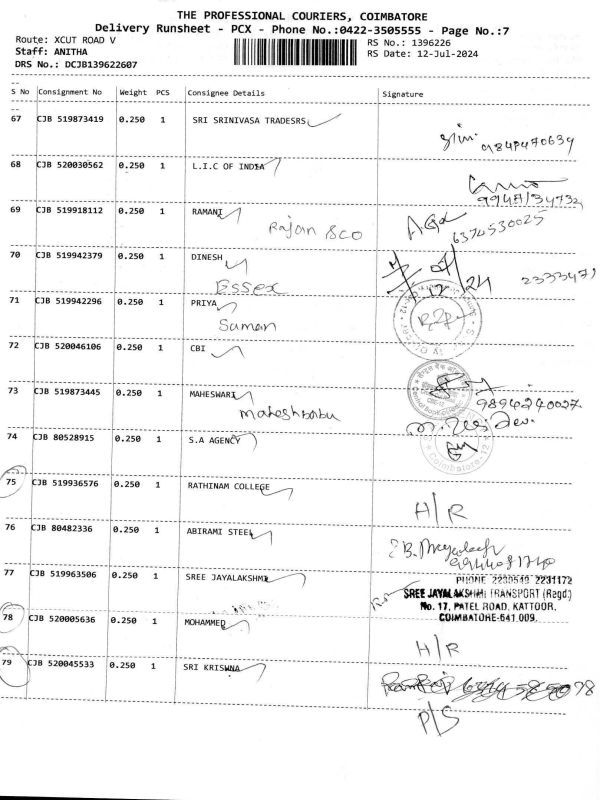 THE PROFESSIONAL COURIERS, COIMBATORE
Delivery Runsheet - PCX - Phone No.:0422-3505555 - Page No.:7
Route: XCUT ROAD V RS No.: 1396226
Staff: ANITHA RS Date: 12-Jul-2024
DRS No.: DCJB139622607
S No Consignment No Weight PCS Consignee Details Signature
67 CJB 519873419 0.250 1 SRI SRINIVASA TRADESRS
68 CJB 520030562 0.250 1 L.I.C OF INDIA
69 CJB 519918112 0.250 1 RAMANI
Rajan &co 6374530025
70 CJB 519942379 0.250 1 DINESH
Essex 2333471
71 CJB 519942296 0.250 1 PRIYA
Suman
72 CJB 520046106 0.250 1 CBI
73 CJB 519873445 0.250 1 MAHESWARI
Maheshbabu 9894240027
74 CJB 80528915 0.250 1 S.A AGENCY
Coimbatore-12
75 CJB 519936576 0.250 1 RATHINAM COLLEGE
H/R
76 CJB 80482336 0.250 1 ABIRAMI STEEL
77 CJB 519963506 0.250 1 SREE JAYALAKSHMI
PHONE 2230549 2231172
SREE JAYALAKSHMI TRANSPORT (Regd.)
No. 17, PATEL ROAD, KATTOOR,
COIMBATORE-641 009.
78 CJB 520005636 0.250 1 MOHAMMED
H/R
79 CJB 520045533 0.250 1 SRI KRISHNA
P/S